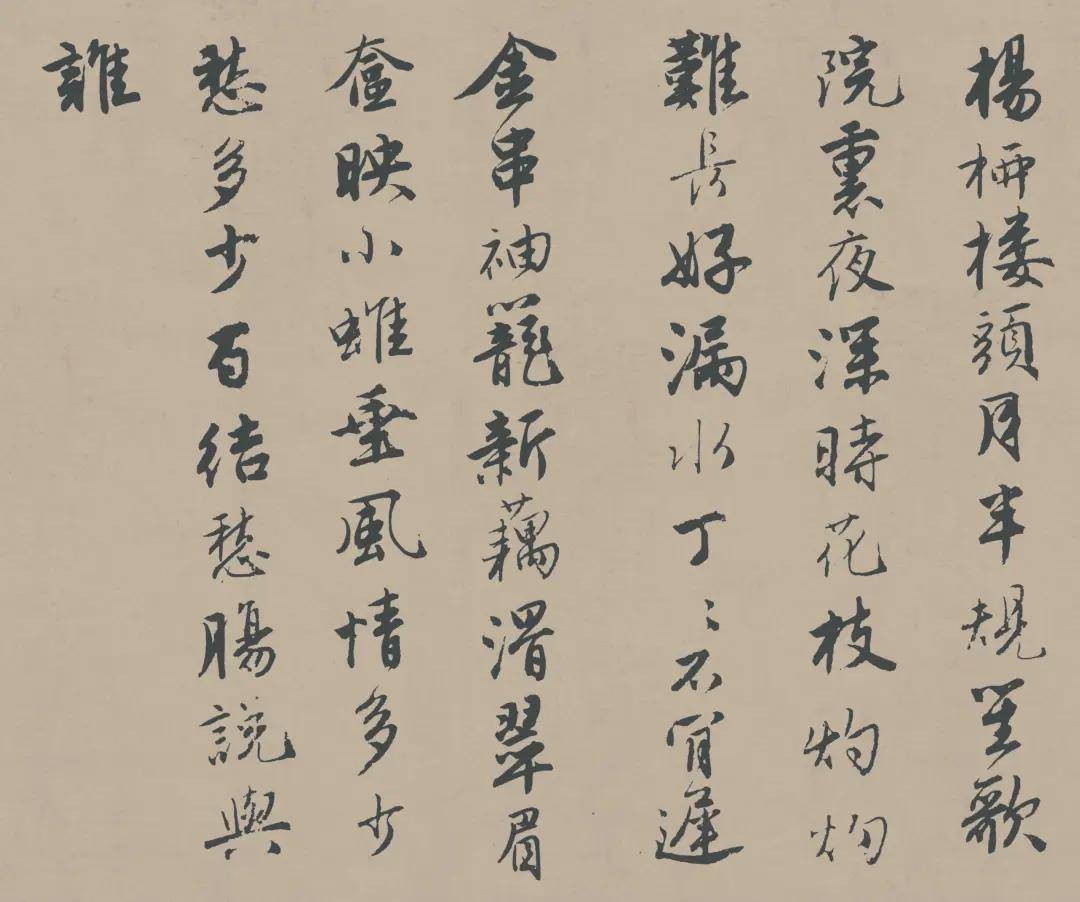 楊柳楼頭月半規笙歌
院裏夜深時花枝灼灼
難長好漏水丁〻不肯遲
金串袖籠新藕滑翠眉
奩映小蛾垂風情多少
愁多少百結愁腸說與
誰